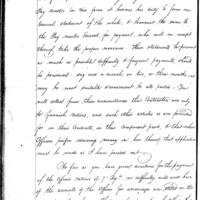 Pay master in this form it becomes his duty to form a
general statement of the whole, & transmit the same to
the Pay master General, for payment, who will in consequence
thereof, take the proper measures. These statements to prevent
as much as possible difficulty & frequent payments, should
be presented say once a month, or two, or three months, as
may be most suitable & convenient to all parties. You
will collect from these circumstances that Contractors are only
to furnish rations, and such other articles as are provided
for in their Contracts, in their component parts, & that when
Officers prefer receiving money in lieu thereof, that application
must be made as I have pointed out.
So far as you have given directions for the payment
of the Officers rations of 7. Sepr. no difficulty will on it have
of the accounts of the Officers for overcharge are settled on the